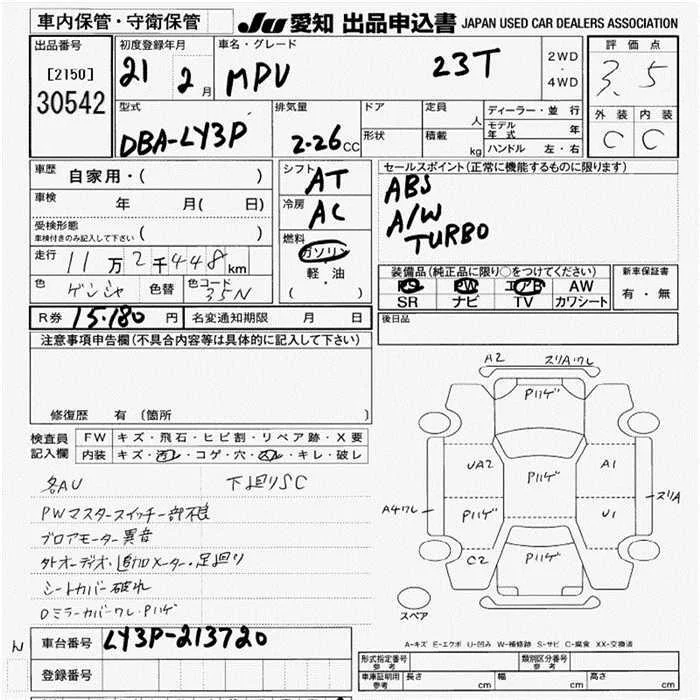 車内保管・守衛保管 JU 愛知 出品申込書 JAPAN USED CAR DEALERS ASSOCIATION
出品番号
[2150]
30542
初度登録年月
21 2 月
車名・グレード
MPV 23T
2WD
・
4WD
評価点
3.5
外装 内装
C C
型式
DBA-LY3P
排気量
2.26 cc
ドア 定員 人
形状 積載 kg
ディーラー・並行
モデル年式 年
ハンドル 左・右
車歴 自家用・( )
車検 年 月( 日)
受検形態
車検付きのみ記入して下さい ( )
走行 11万2千448km
色 ゲンシャ 色替 色コード 35N
シフト AT
冷房 AC
燃料
ガソリン
軽・油
( )
セールスポイント(正常に機能するものに限ります)
ABS
A/W
TURBO
装備品(純正品に限り○をつけてください)
PS PW エアB AW
SR ナビ TV カワシート
新車保証書
有・無
R券 15.180 円 名変通知期限 月 日
後日品
注意事項申告欄(不具合内容等は具体的に記入して下さい)
修復歴 有 〔箇所 〕
検査員記入欄
FW キズ・飛石・ヒビ割・リペア跡・X要
内装 キズ・汚レ・コゲ・穴・スレ・キレ・破レ
各AU 下廻りSC
PWマスタースイッチ一部不良
ブロアモーター異音
外オーディオ・追加メーター・足廻り
シートカバー破れ
Dミラーカバーワレ・Pハゲ
A2 スリA・ワレ
Pハゲ
UA2 Pハゲ A1
A4ワレ Pハゲ U1 スリA
C2 Pハゲ
スペア
A-キズ E-エクボ U-凹み W-補修跡 S-サビ C-腐食 XX-交換済
車台番号 LY3P-213720
登録番号
形式指定番号 参考 類別区分番号 参考
車庫証明用 参考 長さ cm 幅 cm 高さ cm